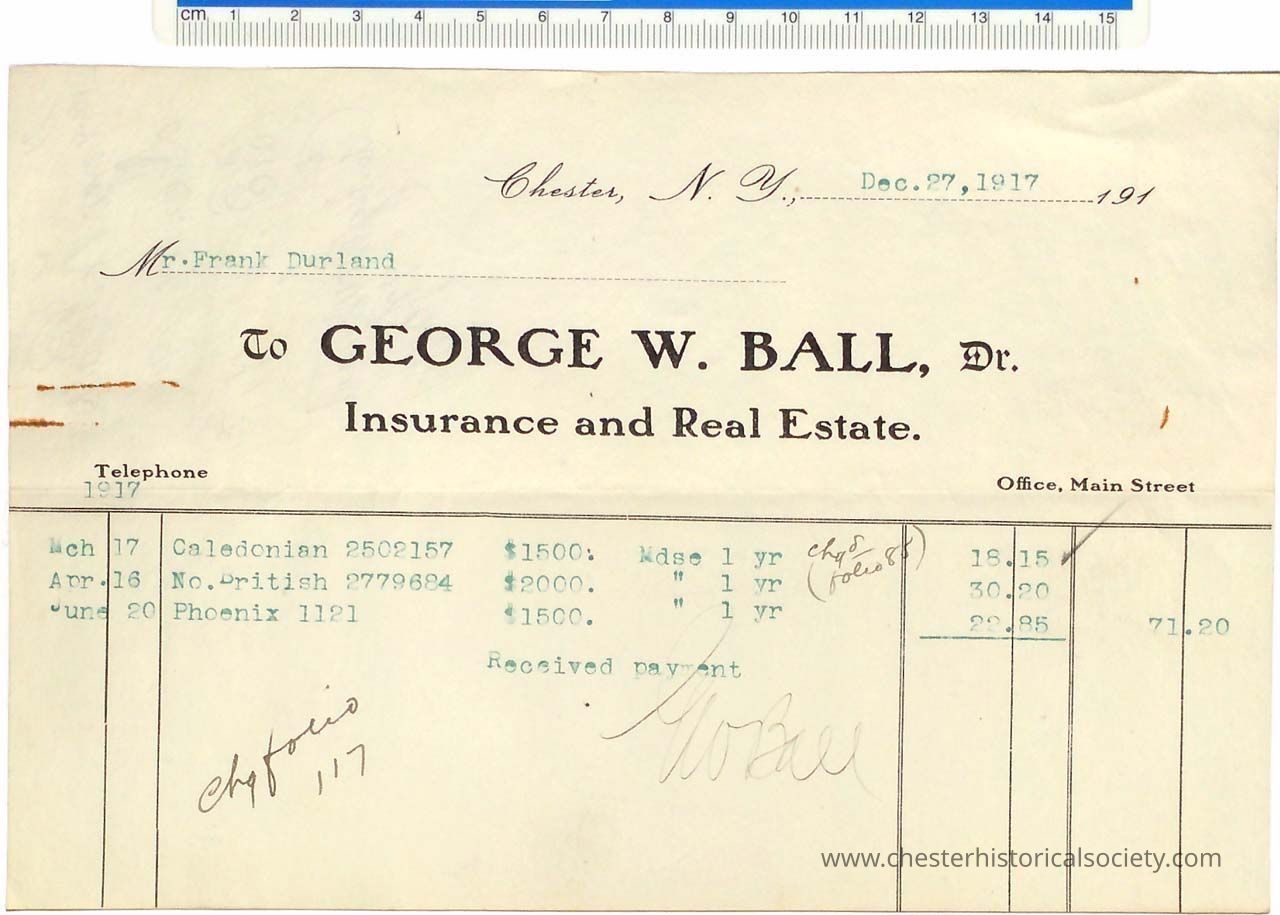 cm 1 2 3 4 5 6 7 8 9 10 11 12 13 14 15
Chester, N. Y., Dec.27,1917 191
Mr.Frank Durland
To GEORGE W. BALL, Dr.
Insurance and Real Estate.
Telephone
Office, Main Street
1917
Mch 17 Caledonian 2502157 $1500. Mdse 1 yr chgd 18.15
(folio 88)
Apr.16 No.British 2779684 $2000. " 1 yr 30.20
June 20 Phoenix 1121 $1500. " 1 yr 22.85 71.20
Received payment
GWBall
chg folio
117
www.chesterhistoricalsociety.com